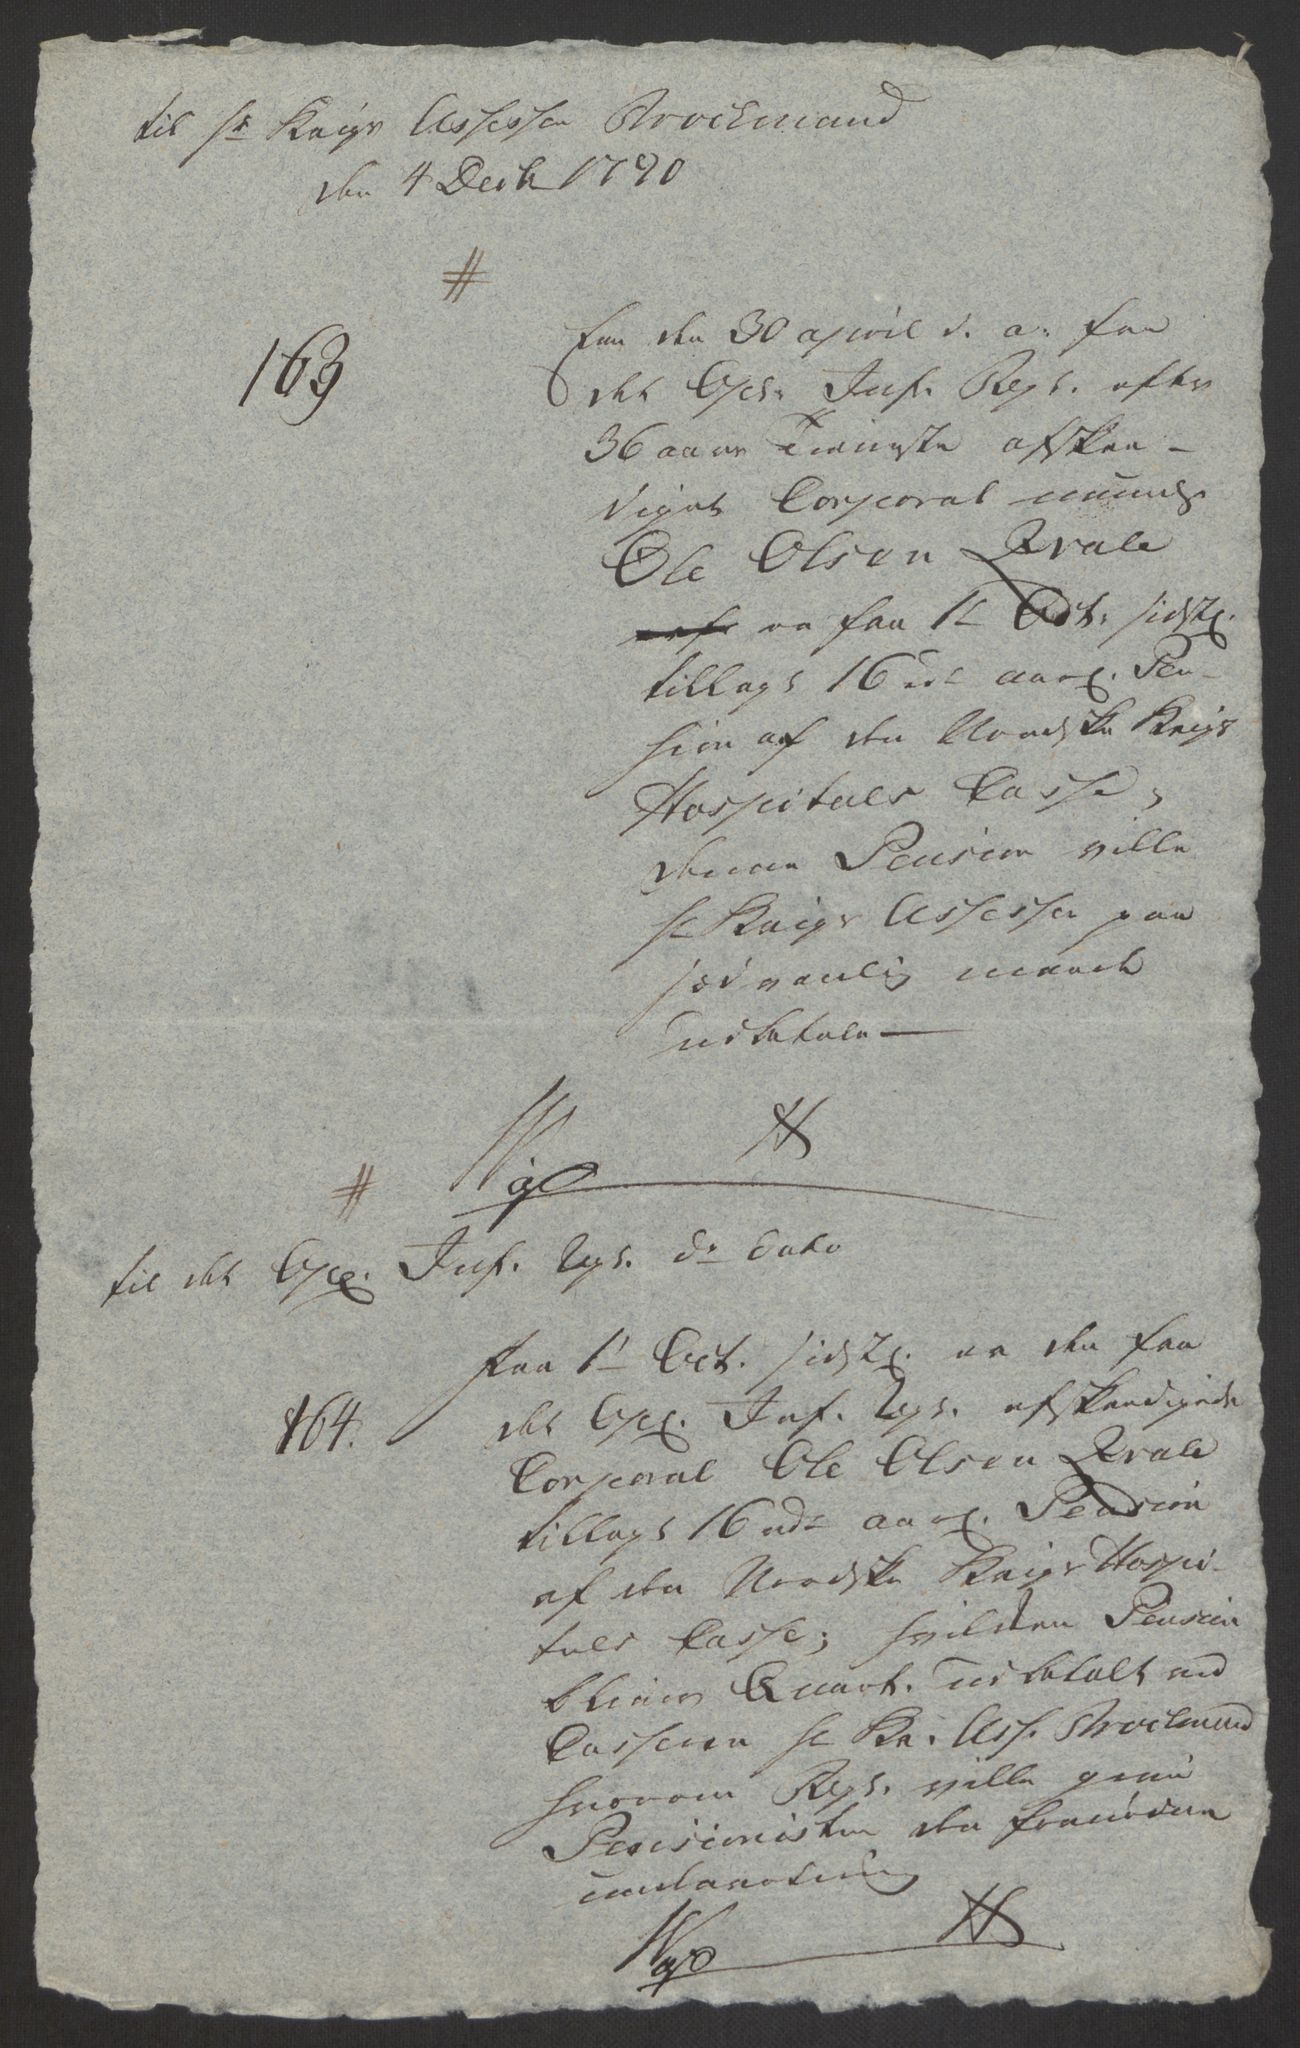 til Hr Krigs Assessor Brockmand
den 4 Decbr 1790
#
163
Een den 30 april d. a. fra
det Opl. Inf. Regt. efter
36 aars Tieneste afskee-
diget Corporal nemlig
Ole Olsen Qvale
er fra 1te Oct. sidstl.
tillagt 16 rdr aarl. Pen-
sion af den Norske Krigs
Hospitals Casse,
denne Pension ville
Hr Krigs Assessor paa
sædvanlig maade
udbetale
#
til det Opl. Inf. Regt. dr dato
164.
Fra 1te Oct. sidstl. er den fra
det Opl. Inf. Regt. afskeedigede
Corporal Ole Olsen Qvale
tillagt 16 rdr aarl. Pension
af den Norske Krigs Hospi-
tals Casse; hvilken Pension
bliver Quart. udbetalt ved
Casserer Hr Kr. Ass. Brockmand
hvorom Regt. ville give
Pensionisten den fornødne
underretning